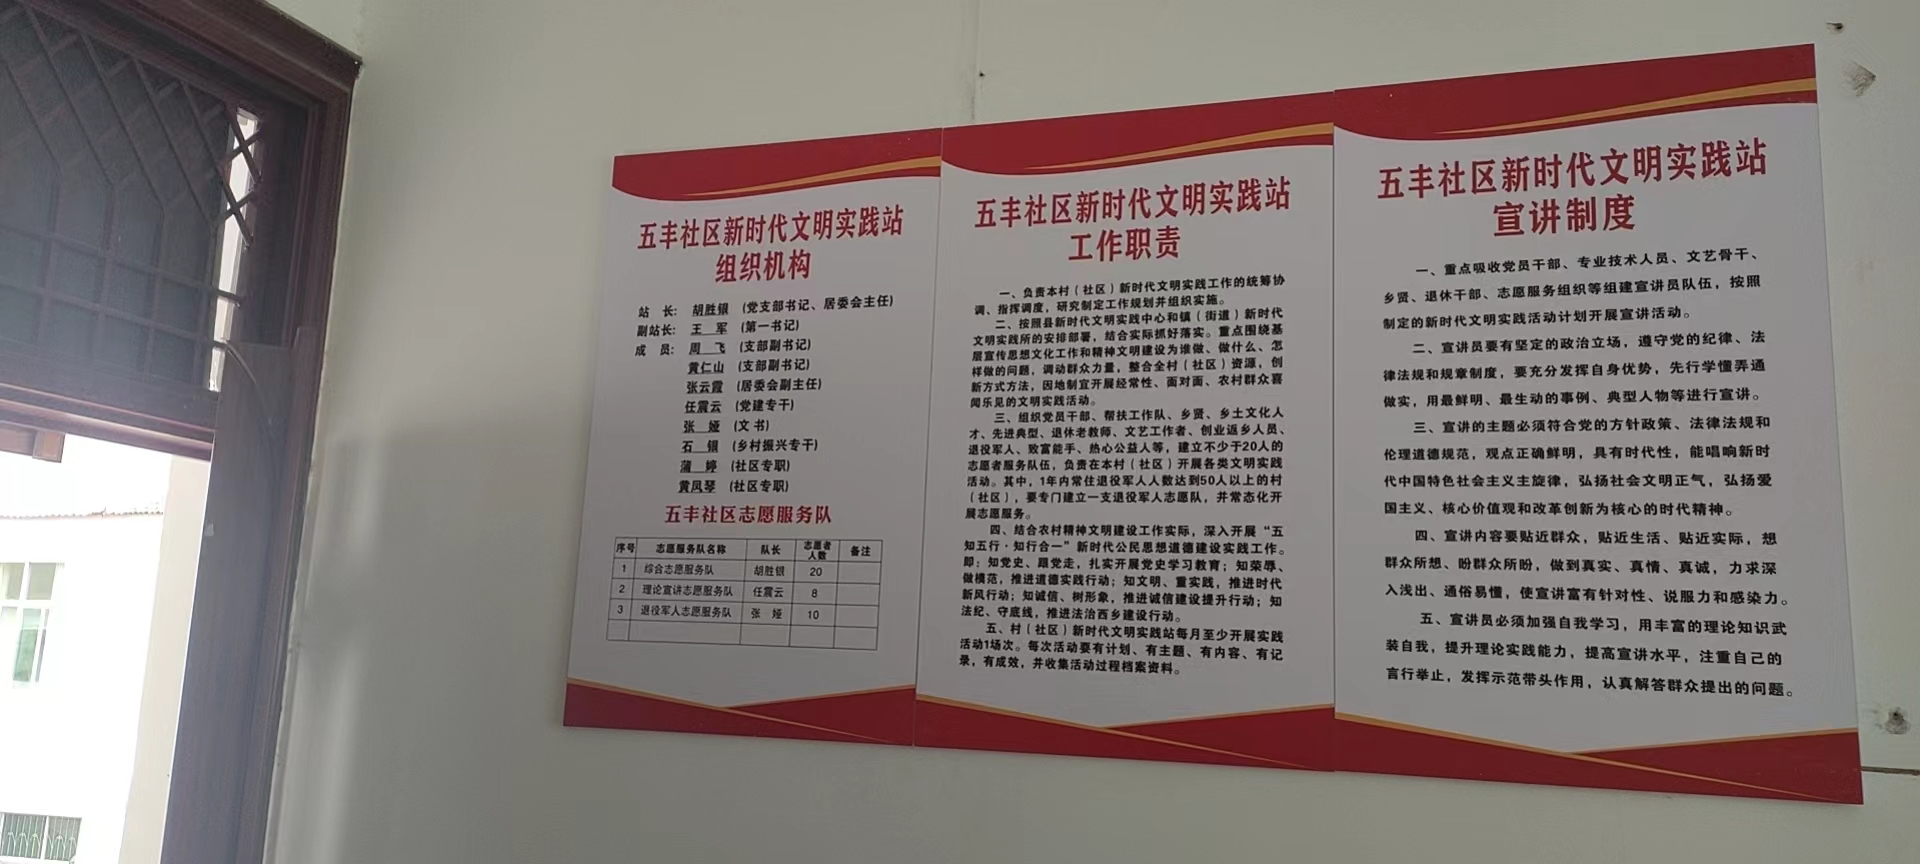 五丰社区新时代文明实践站
组织机构
站 长: 胡胜银 (党支部书记、居委会主任)
副站长: 王 军 (第一书记)
成 员: 周 飞 (支部副书记)
黄仁山 (支部副书记)
张云霞 (居委会副主任)
任震云 (党建专干)
张 娅 (文 书)
石 银 (乡村振兴专干)
蒲 婷 (社区专职)
黄凤琴 (社区专职)
五丰社区志愿服务队
序号 志愿服务队名称 队长 志愿者人数 备注
1 综合志愿服务队 胡胜银 20
2 理论宣讲志愿服务队 任震云 8
3 退役军人志愿服务队 张 娅 10
五丰社区新时代文明实践站
工作职责
一、负责本村（社区）新时代文明实践工作的统筹协
调、指挥调度，研究制定工作规划并组织实施。
二、按照县新时代文明实践中心和镇（街道）新时代
文明实践所的安排部署，结合实际抓好落实。重点围绕基
层宣传思想文化工作和精神文明建设为谁做、做什么、怎
样做的问题，调动群众力量，整合全村（社区）资源，创
新方式方法，因地制宜开展经常性、面对面、农村群众喜
闻乐见的文明实践活动。
三、组织党员干部、帮扶工作队、乡贤、乡土文化人
才、先进典型、退休老教师、文艺工作者、创业返乡人员、
退役军人、致富能手、热心公益人等，建立不少于20人的
志愿者服务队伍，负责在本村（社区）开展各类文明实践
活动。其中，1年内常住退役军人人数达到50人以上的村
（社区），要专门建立一支退役军人志愿队，并常态化开
展志愿服务。
四、结合农村精神文明建设工作实际，深入开展“五
知五行·知行合一”新时代公民思想道德建设实践工作。
即：知党史、跟党走，扎实开展党史学习教育；知荣辱、
做模范，推进道德实践行动；知文明、重实践，推进时代
新风行动；知诚信、树形象，推进诚信建设提升行动；知
法纪、守底线，推进法治西乡建设行动。
五、村（社区）新时代文明实践站每月至少开展实践
活动1场次。每次活动要有计划、有主题、有内容、有记
录，有成效，并收集活动过程档案资料。
五丰社区新时代文明实践站
宣讲制度
一、重点吸收党员干部、专业技术人员、文艺骨干、
乡贤、退休干部、志愿服务组织等组建宣讲员队伍，按照
制定的新时代文明实践活动计划开展宣讲活动。
二、宣讲员要有坚定的政治立场，遵守党的纪律、法
律法规和规章制度，要充分发挥自身优势，先行学懂弄通
做实，用最鲜明、最生动的事例、典型人物等进行宣讲。
三、宣讲的主题必须符合党的方针政策、法律法规和
伦理道德规范，观点正确鲜明，具有时代性，能唱响新时
代中国特色社会主义主旋律，弘扬社会文明正气，弘扬爱
国主义、核心价值观和改革创新为核心的时代精神。
四、宣讲内容要贴近群众，贴近生活、贴近实际，想
群众所想、盼群众所盼，做到真实、真情、真诚，力求深
入浅出、通俗易懂，使宣讲富有针对性、说服力和感染力。
五、宣讲员必须加强自我学习，用丰富的理论知识武
装自我，提升理论实践能力，提高宣讲水平，注重自己的
言行举止，发挥示范带头作用，认真解答群众提出的问题。